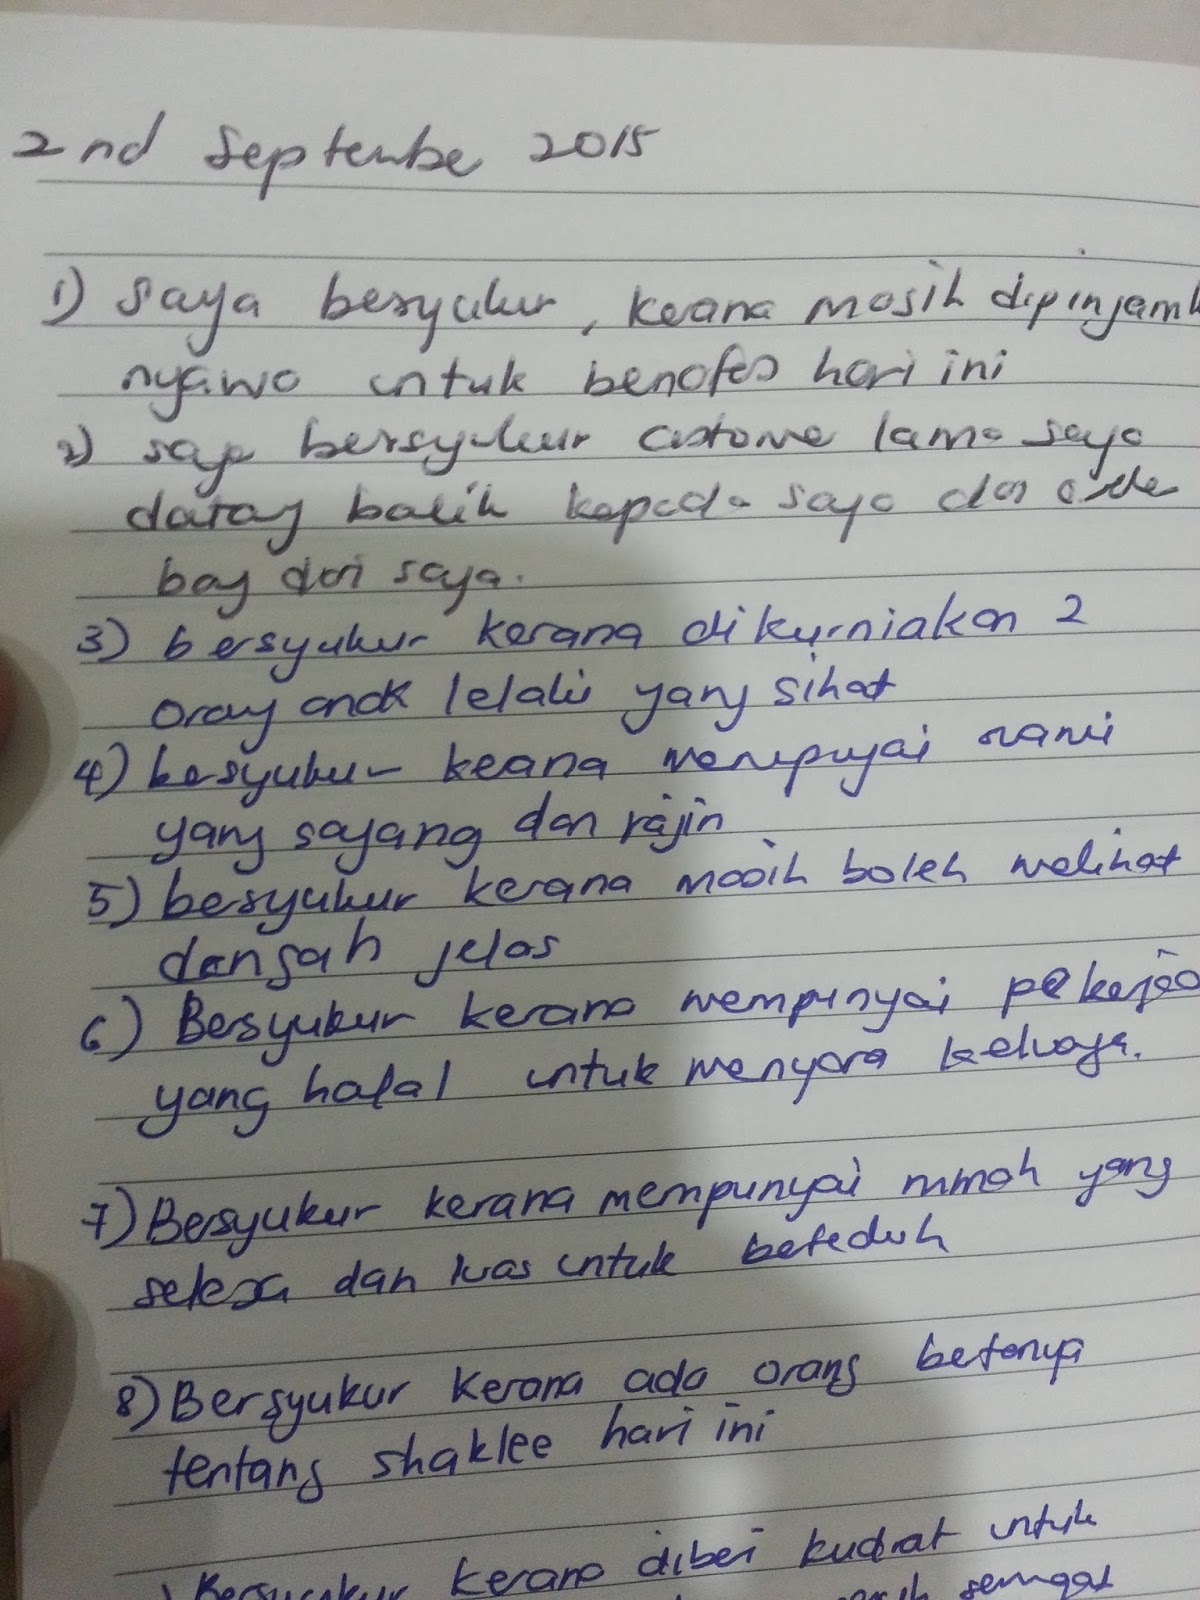 2nd Septembe 2015
1) Saya bersyukur, kerana masih dipinjamk
nyawa untuk benafas hari ini
2) saya bersyukur custome lama saya
datang balik kepada saya dan orde
bag dari saya.
3) bersyukur kerana dikurniakan 2
orang anak lelaki yang sihat
4) besyukur keana mempuyai suami
yang sayang dan rajin
5) besyukur kerana masih boleh melihat
dengah jelas
6) Besyukur kerana mempunyai pekejaa
yang halal untuk menyara keluaga.
7) Besyukur kerana mempunyai rumah yang
selesa dan luas untuk beteduh
8) Bersyukur kerana ada orang betanya
tentang shaklee hari ini
) Bersyukur kerana dibei kudrat untuk
semgat